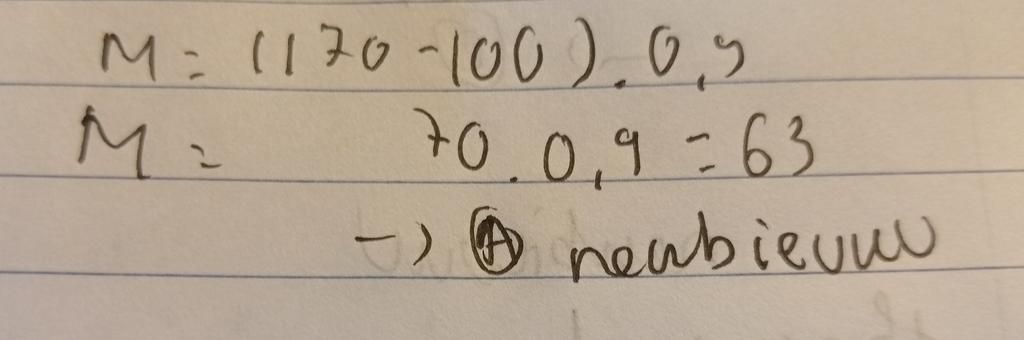 M = (170 - 100) . 0,9
M = 70 . 0,9 = 63
→ A newbieuuu